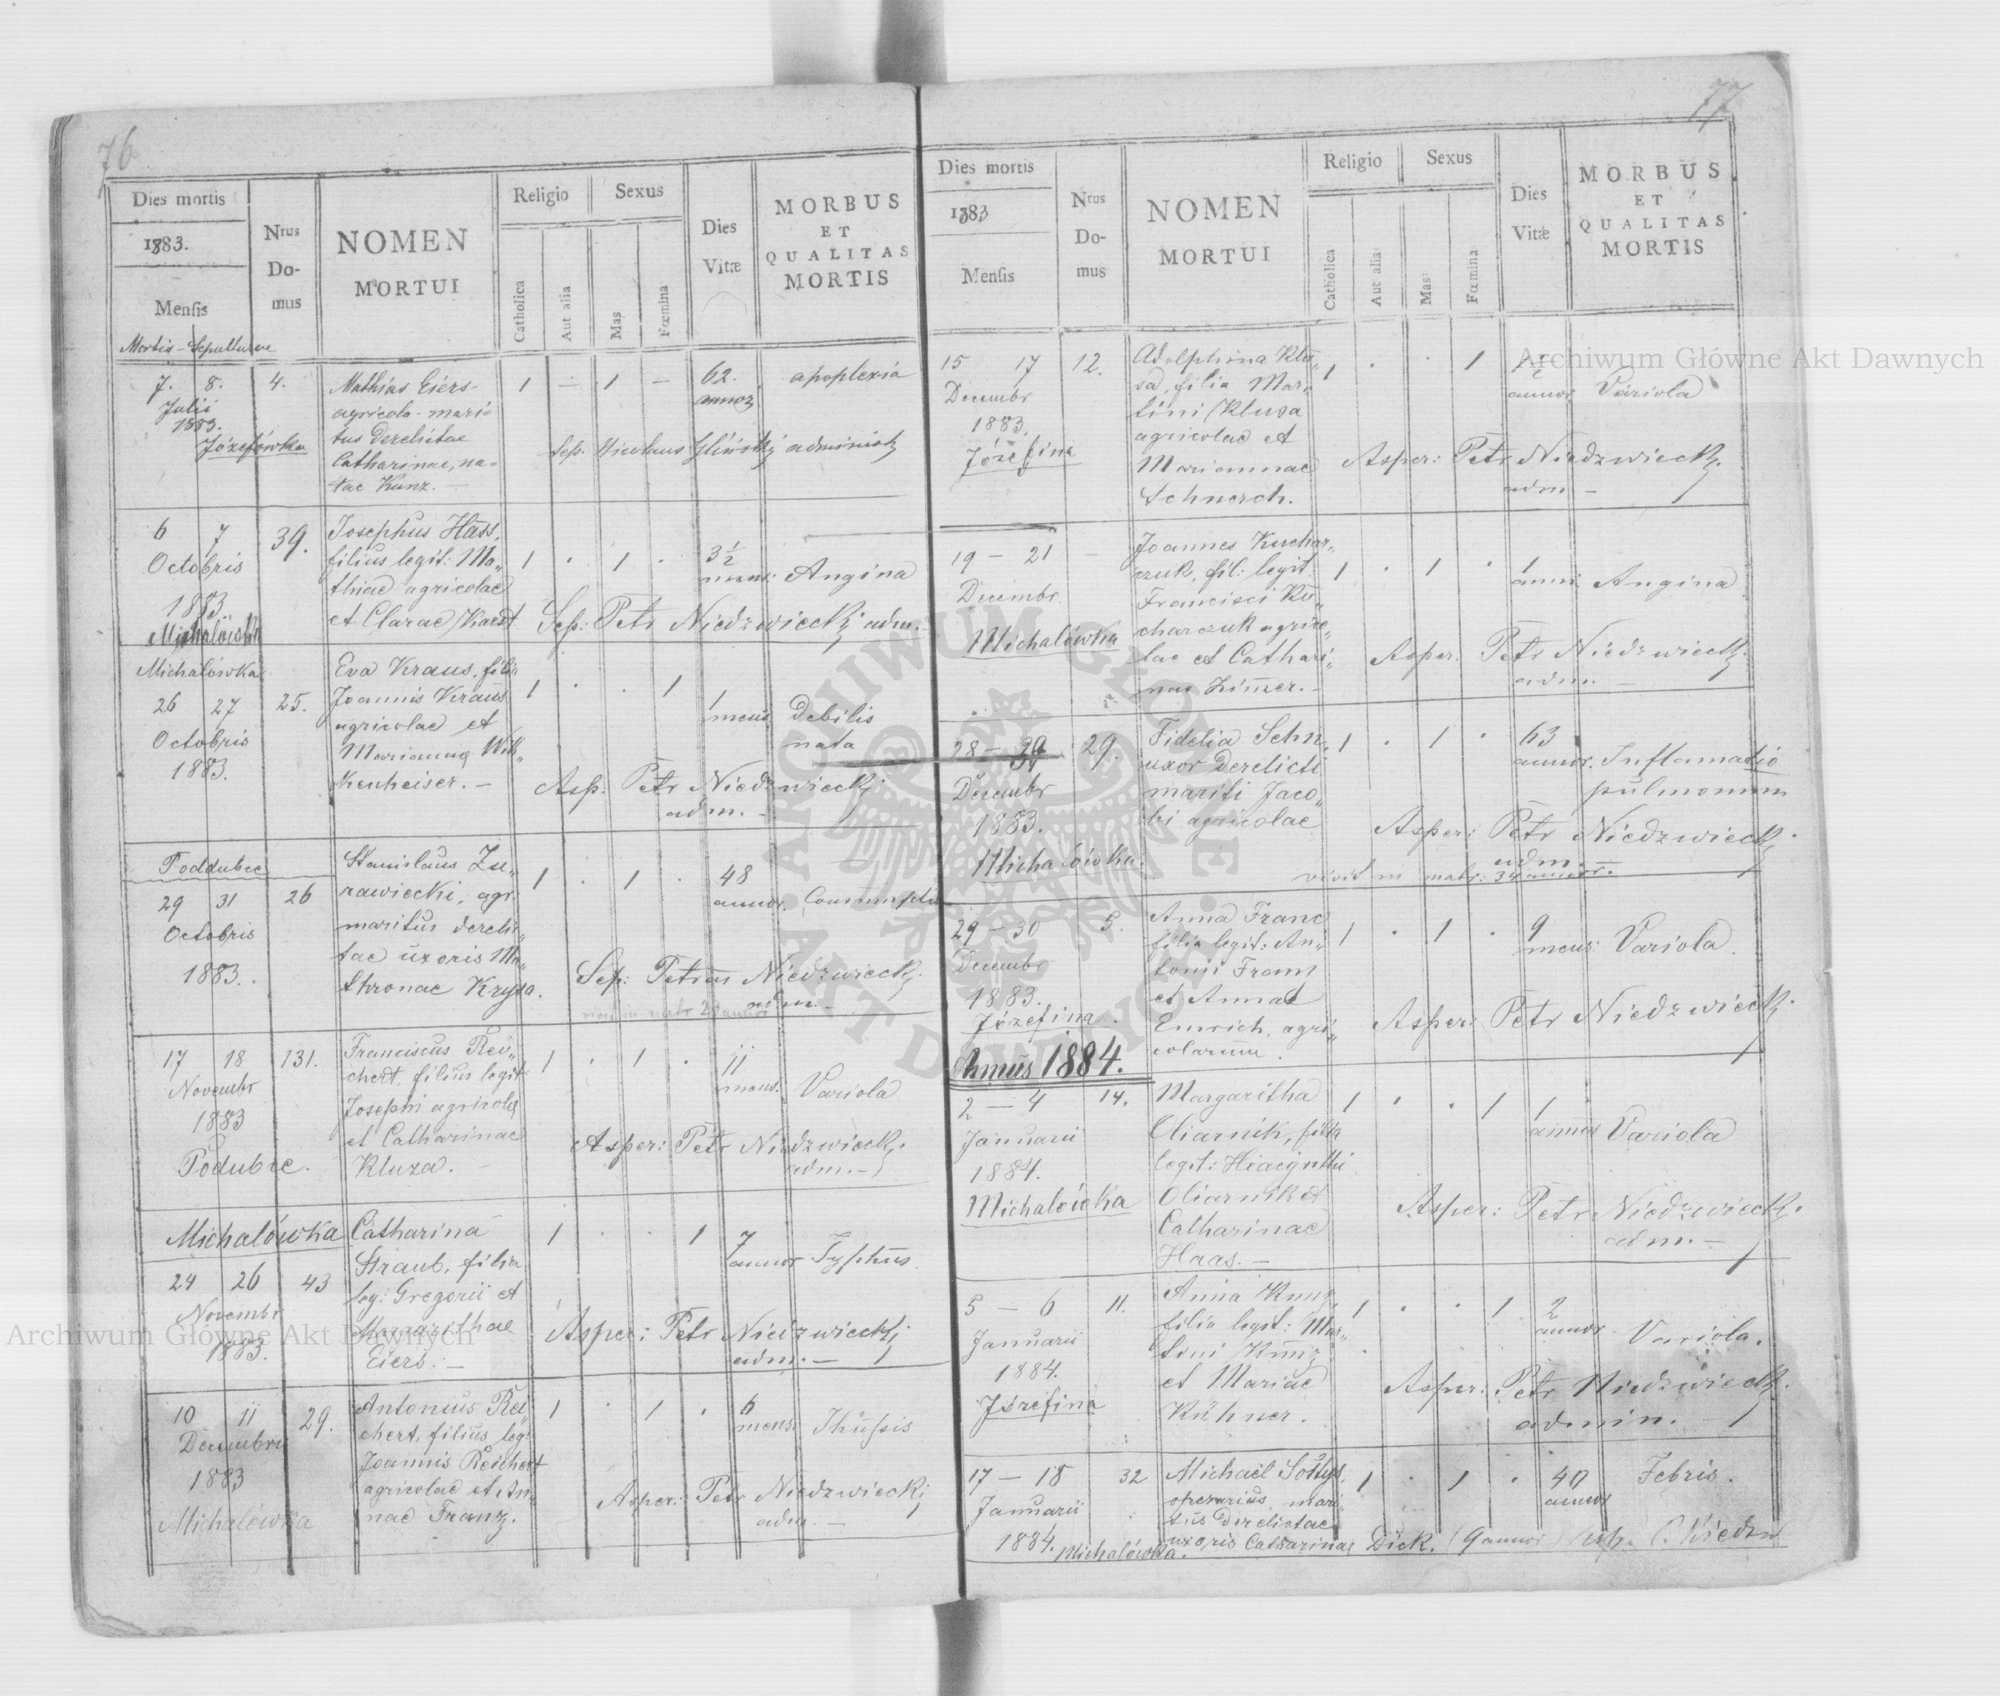 76
Dies mortis
1883.
Mensis
Mortis - Sepulturae
Nrus
Do-
mus
NOMEN
MORTUI
Religio
Catholica
Aut alia
Sexus
Mas
Fœmina
Dies
Vitæ
MORBUS
ET
QUALITAS
MORTIS
7. 8. 4.
Julii
1883.
Józefówka
Mathias Eiers
agricola - mari
tus derelictae
Catharinae, na-
tae Kunz. -
1 - 1 -
62.
annor
apoplexia
Sep. Nicolaus administ
6 7 39.
Octobris
1883.
Michalówka
Josephus Hass,
filius legit: Ma„
thiae agricolae
et Clarae Karst
1 . 1 .
3 1/2
mens: Angina
Sep: Petr Niedzwiecki adm. -
Michalówka
26 27 25.
Octobris
1883.
Eva Kraus, filia
Joannis Kraus
agricolae et
Mariannae Wik„
kenheiser. -
1 . . 1
1
mens debilis
nata
Asp. Petr Niedzwiecki
adm. -
Poddubce
29 31 26
Octobris
1883.
Stanislaus Żu„
rawiecki, agr.
maritus derelic„
tae uxoris Ma„
thronae Krysa.
1 . 1 .
48
annor. Consumptio
Sep: Petrus Niedzwiecki
adm. -
17 18 131.
Novembr
1883
Podubce.
Franciscus Rei„
chert, filius legit:
Josephi agricolae
et Catharinae
Kluza. -
1 . 1 .
11
mens. Variola
Asper: Petr Niedzwiecki
adm. -
Michalówka
24 26 43
Novembr
1883.
Catharina
Straub, filia
leg: Gregorii et
Margarithae
Eiers. -
1 . . 1
7
annor Typhus
Asper: Petr Niedzwiecki
adm. -
10 11 29.
Decembris
1883
Michalówka
Antonius Rei„
chert, filius leg:
Joannis Reichert
agricolae et An„
nae Franz.
1 . 1 .
6
mens: Thussis
Asper: Petr Niedzwiecki
adm. -
77
Dies mortis
1883
Mensis
Nrus
Do-
mus
NOMEN
MORTUI
Religio
Catholica
Aut alia
Sexus
Mas
Fœmina
Dies
Vitæ
MORBUS
ET
QUALITAS
MORTIS
15 17 12.
Decembr
1883.
Józefina
Adolphina Klu„
sa, filia Mar„
tini Klusa
agricolae et
Mariannae
Schnerch.
1 . . 1
annor Variola
Asper: Petr Niedzwiecki
adm -
19 - 21 -
Decembr
Michalówka
Joannes Kuchar„
czuk, fil: legit
Francisci Ku„
charczuk agrico„
lae et Cathari„
nae Zimmer. -
1 . 1 .
1
anni Angina
Asper. Petr Niedzwiecki
adm. -
28 - 29.
Decembr
1883.
Michalówka.
Fidelia Schn„
uxor derelicti
mariti Jaco„
bi agricolae
1 . 1 .
63
annor. Inflamatio
pulmonum
Asper: Petr Niedzwiecki
adm. -
vixit in matr: 34 annor.
29 - 30 5.
Decembr
1883.
Józefina.
Anna Franz
filia legit: An„
tonii Franz
et Annae
Emrich, agri„
colarum.
1 . 1 .
9
mens: Variola.
Asper: Petr Niedzwiecki
Annus 1884.
2 - 4 14.
Januarii
1884.
Michalówka
Margaritha
Oliarnik, filia
legit: Hiacynthi
Oliarnik et
Catharinae
Haas. -
1 . . 1
1
annus Variola
Asper: Petr Niedzwiecki.
adm. -
5 - 6 11.
Januarii
1884.
Józefina
Anna Kunz,
filia legit: Mar„
tini Kunz
et Mariae
Kühner.
1 . . 1
2
annor Variola.
Asper: Petr Niedzwiecki.
admin. -
17 - 18 32
Januarii
1884. Michalówka.
Michael Sołtys,
operarius, mari„
tus derelictae
uxoris Catharinae Dick. (9 annor)
1 . 1 .
40
annor
Febris.
Archiwum Główne Akt Dawnych
Archiwum Główne Akt Dawnych
ARCHIWUM GŁÓWNE AKT DAWNYCH